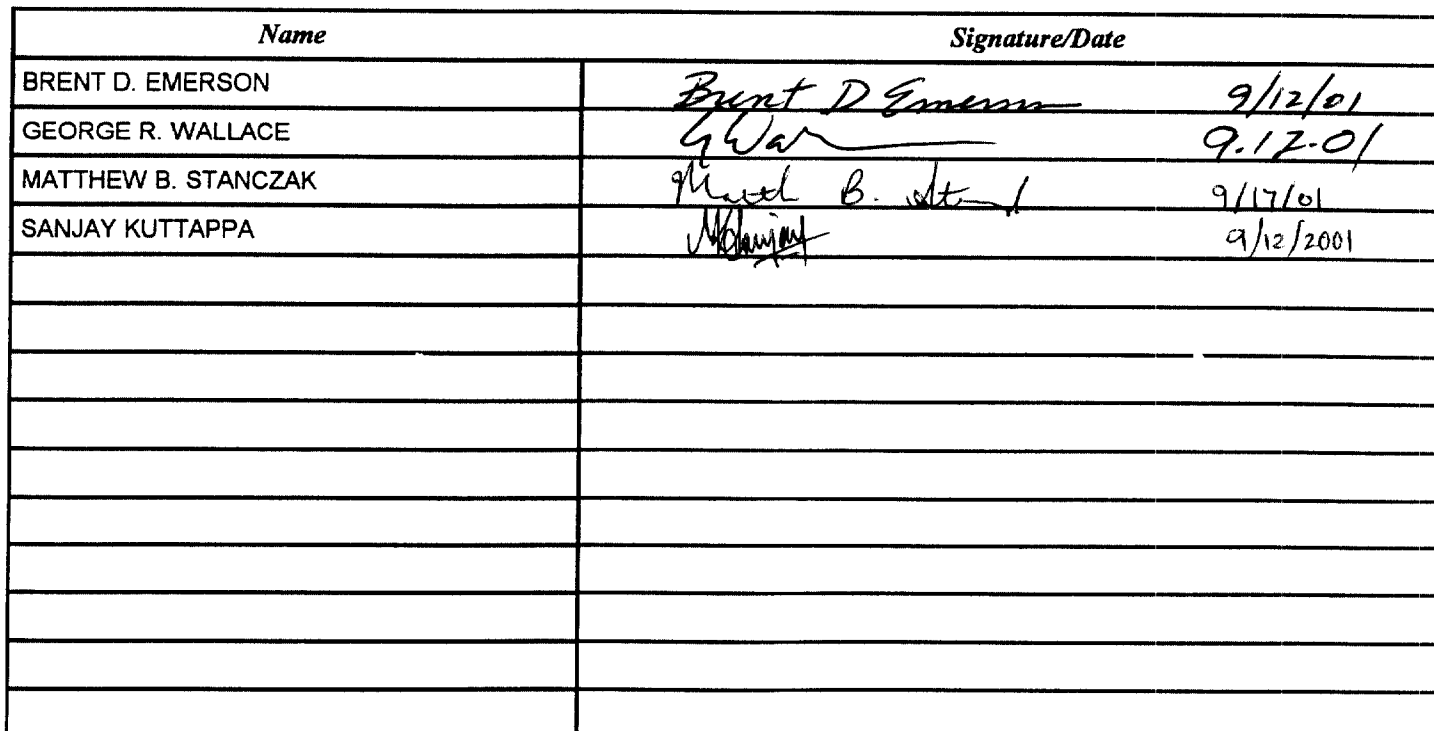 Name Signature/Date
BRENT D. EMERSON Brent D Emerson 9/12/01
GEORGE R. WALLACE G Wal 9.12.01
MATTHEW B. STANCZAK Matth B. 9/17/01
SANJAY KUTTAPPA 9/12/2001